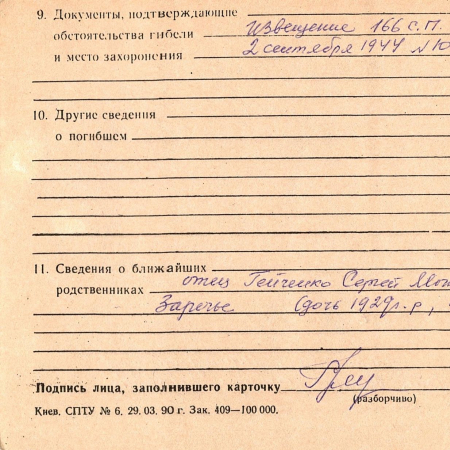 9. Документы, подтверждающие
обстоятельства гибели Извещение 166 с.п.
и место захоронения 2 сентября 1944 №10
10. Другие сведения
о погибшем
11. Сведения о ближайших
родственниках отец Гейченко Сергей
Заречье (дочь 1929г.р.,
Подпись лица, заполнившего карточку
(разборчиво)
Киев. СПТУ № 6. 29. 03. 90 г. Зак. 409—100 000.